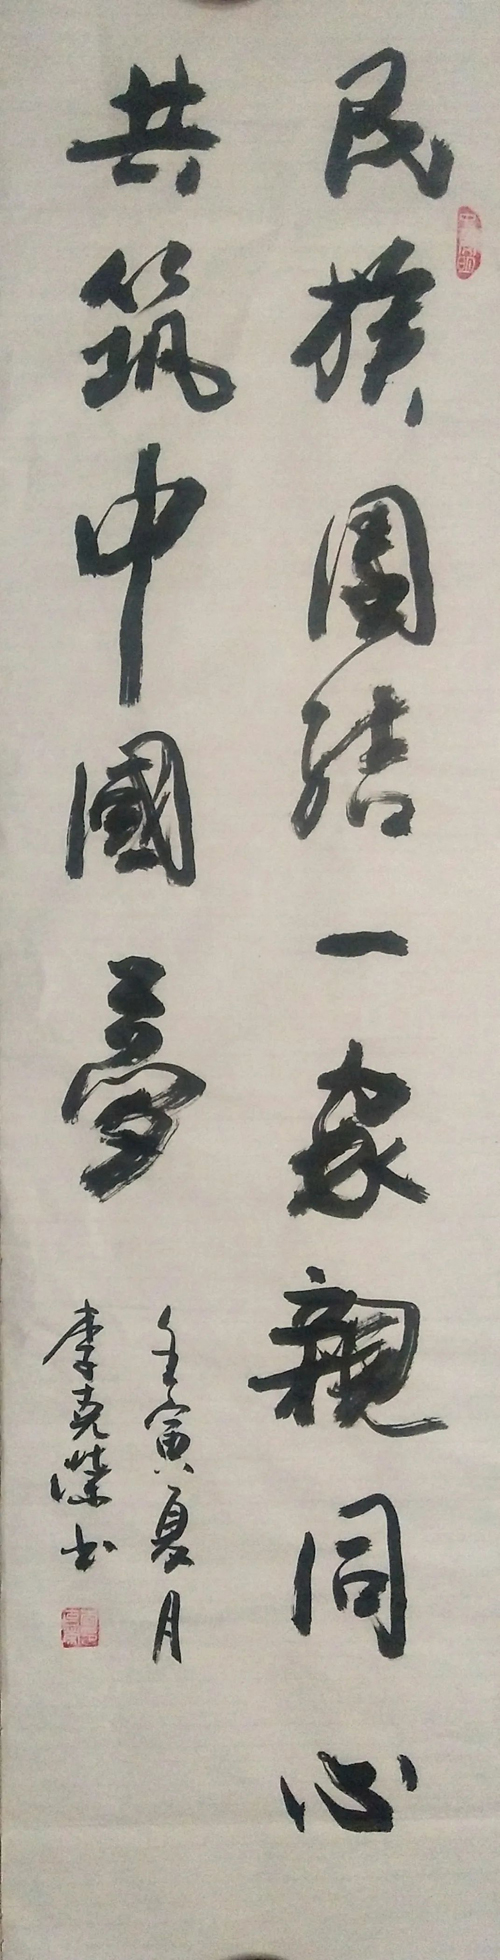 民族團结一家親同心
共筑中國夢
壬寅夏月
李克潔书